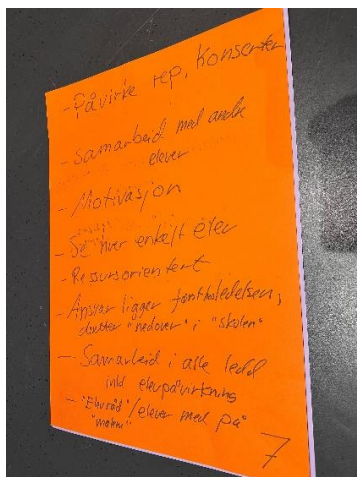 - Påvirke rep, Konserter
- Samarbeid med andre
elever
- Motivasjon
- Se hver enkelt elev
- Ressursorientert
- Ansvar ligger
"nedover" i "skolen"
- Samarbeid i alle ledd
inkl elevpåvirkning
- "Elevråd"/elever med på
7